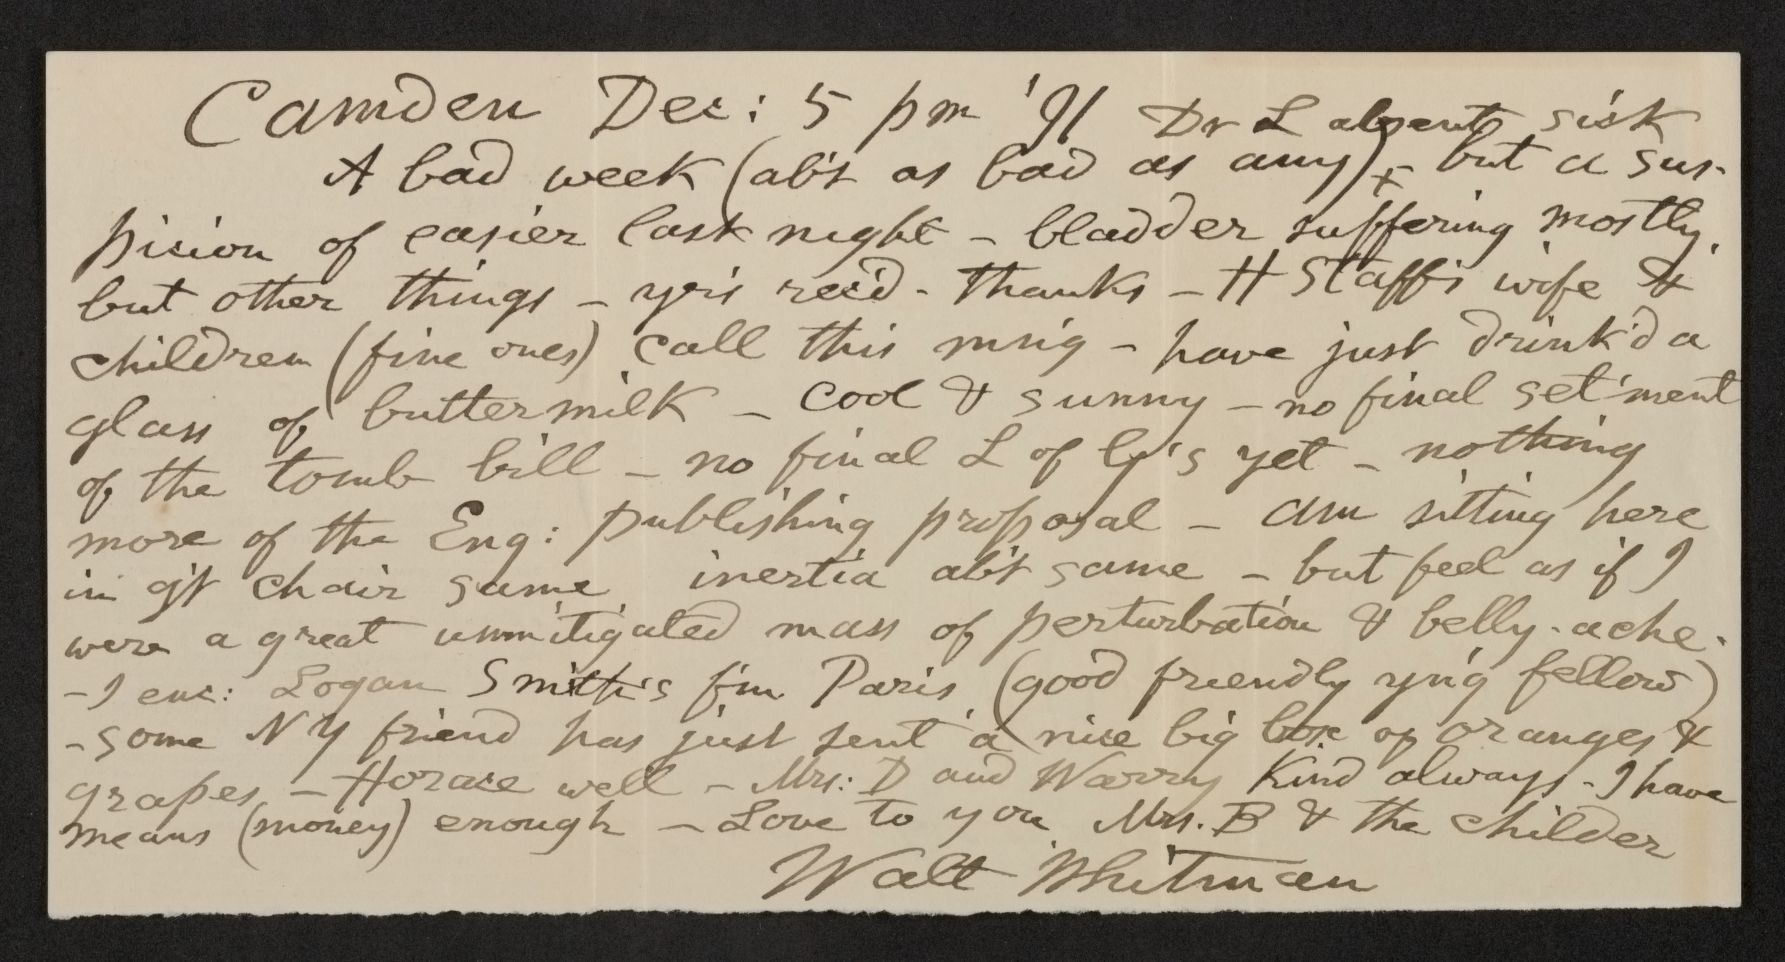 Camden Dec: 5 pm '91 Dr L absent sick
A bad week (ab't as bad as any) + – but a sus-
picion of easier last night – bladder suffering mostly,
but other things – yr's rec'd – thanks – H Staff's wife &
children (fine ones) call this mn'g – have just drink'd a
glass of buttermilk – cool & sunny – no final set'ment
of the tomb bill – no final L of G's yet – nothing
more of the Eng: publishing proposal – am sitting here
in g't chair same inertia ab't same – but feel as if I
were a great unmitigated mass of perturbation & belly-ache –
– I enc: Logan Smith's f'm Paris (good friendly yn'g fellow)
– some N Y friend has just sent a nice big box of oranges &
grapes – Horace well – Mrs: D and Warry kind always – I have
means (money) enough – Love to you Mrs. B & the childer
Walt Whitman